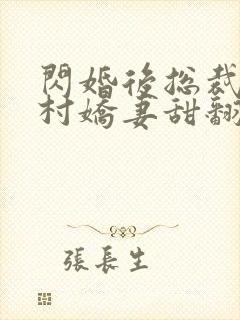 閃婚後總裁
村嬌妻甜翻
張長生